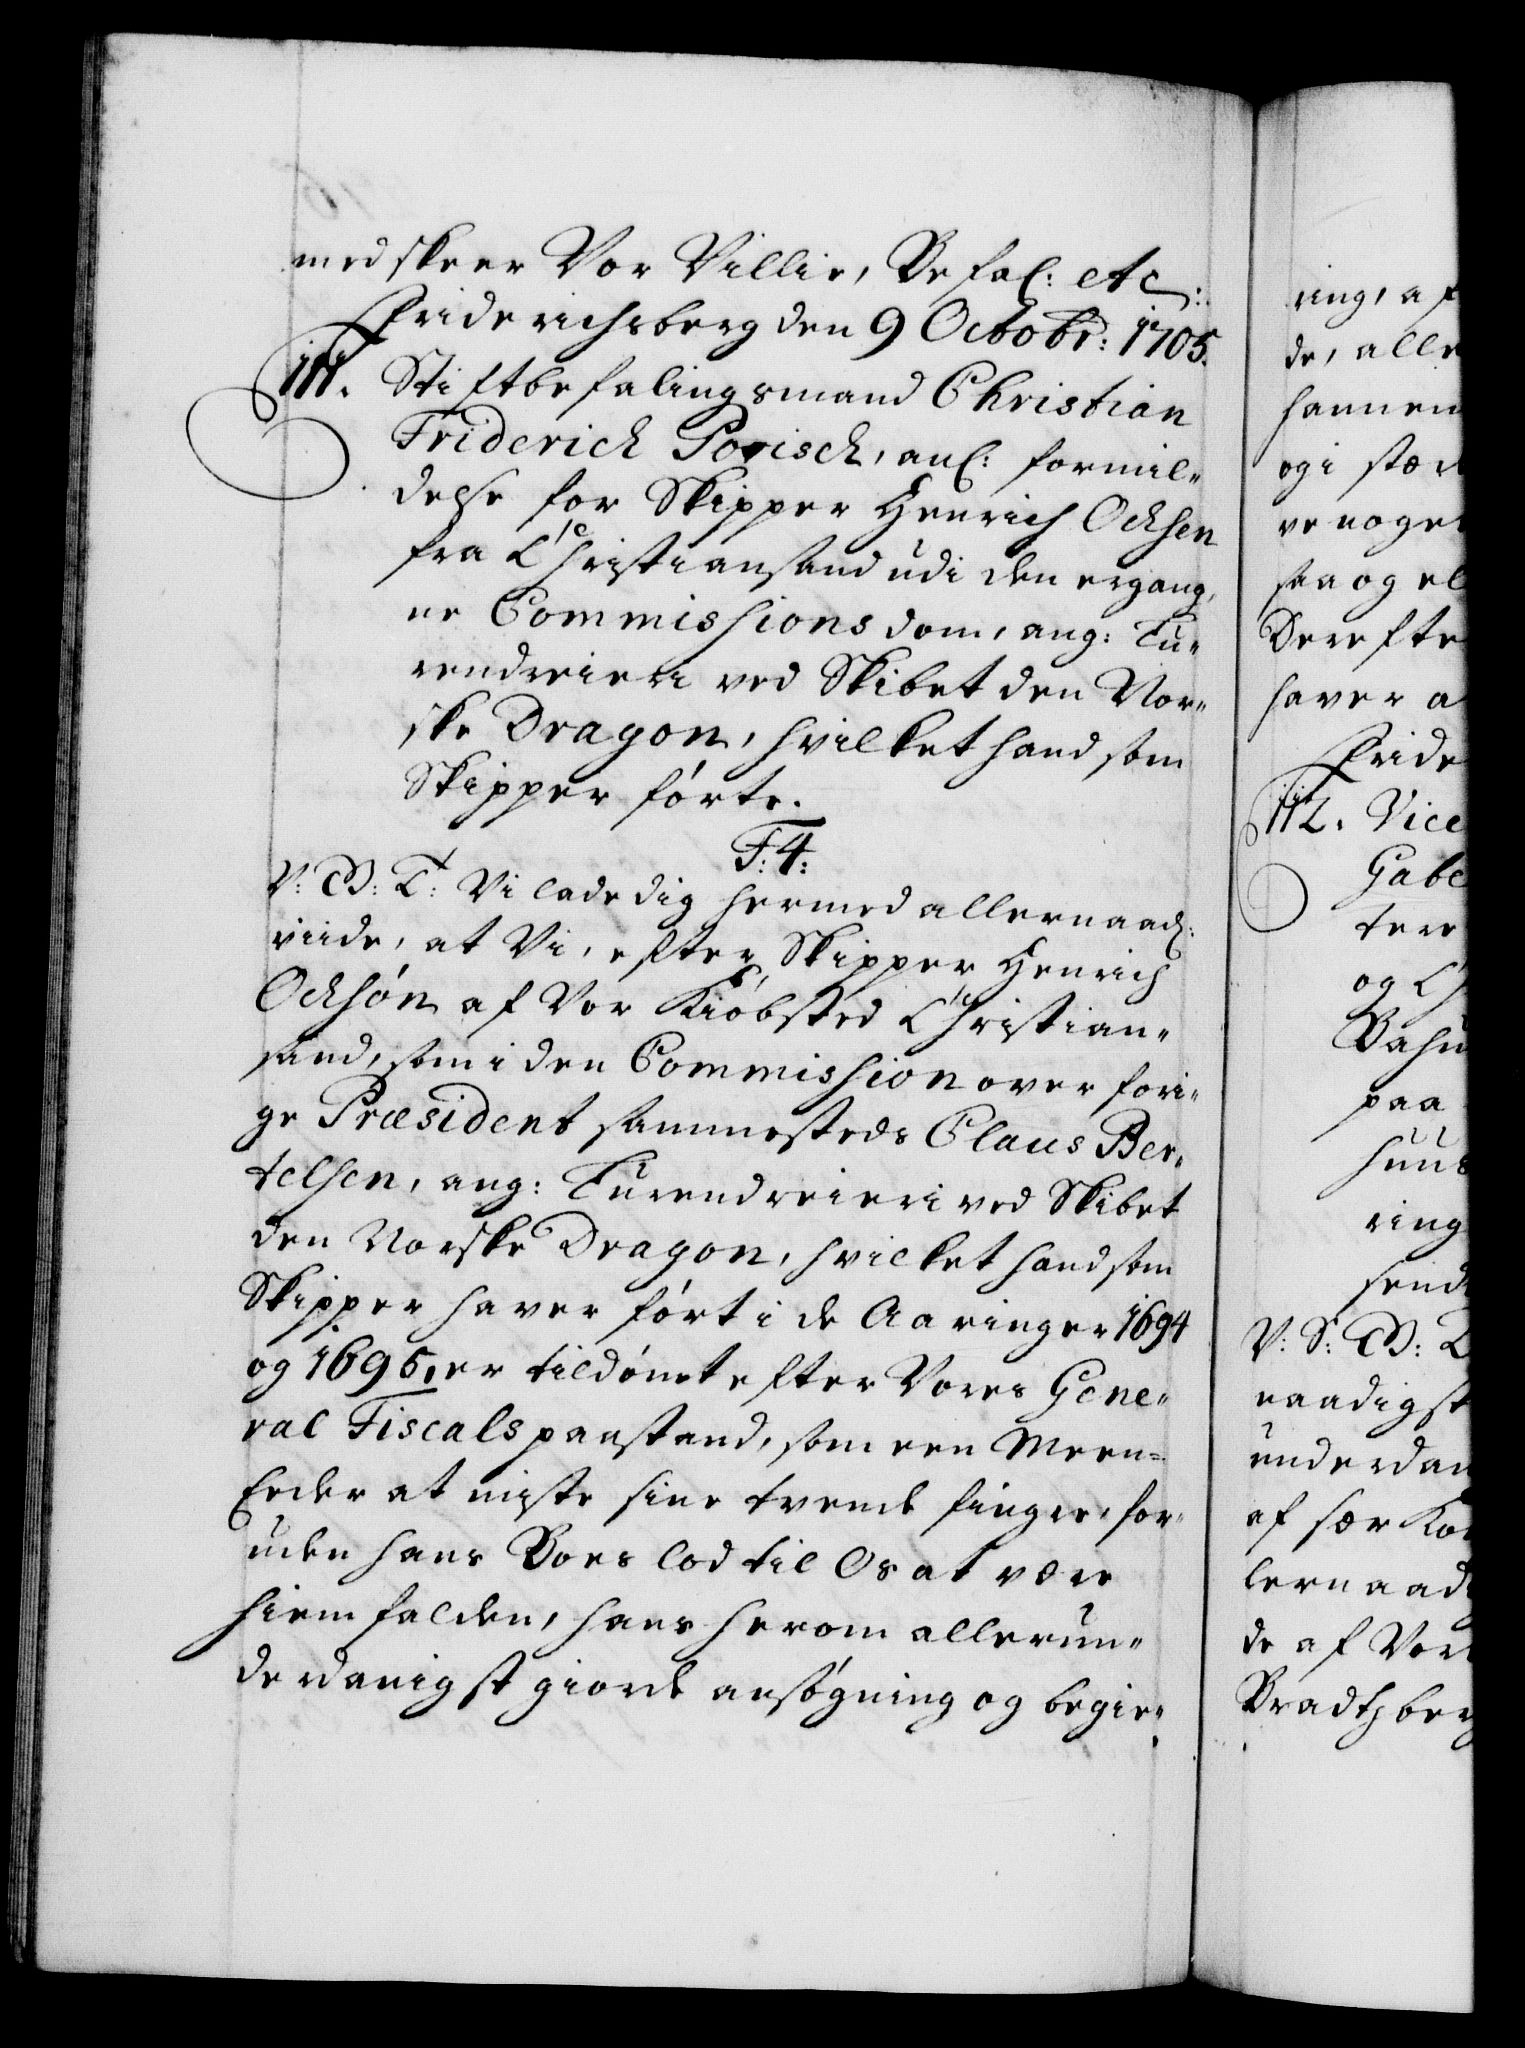 med skeer Vor Villie, Befal: etc:
Friderichsberg den 9 Octobr: 1705.
111. Stiftbefalingsmand Christian
Friderich Powisch, anl: formil„
delse for Skipper Henrich Ochsen
fra Christiansand udi den ergang„
ne Commissions dom, ang: Tu„
rendreieri ved Skibet den Nor„
ske Dragon, hvilket hand som
Skipper förte.
F: 4:
V: G: T: Vi lade dig hermed allernaad:
viide, at Vi, efter Skipper Henrich
Ochsøn af Vor Kiöbsted Christian„
sand, som i den Commission over fori„
ge Præsident sammesteds Claus Ber„
telsen, ang: Turendreieri ved Skibet
den Norske Dragon, hvilket hand som
Skipper haver fört i de Aaringer 1694
og 1695, er tildömt efter Vores Gene„
ral Fiscals paastand, som een Meen„
Eeder at miste sine tvende fingre, for„
uden hans Boes lod til Os at være
hiemfalden, hans herom allerun„
derdanigst giorde ansögning og begie„
ring, af
de, alle
hannem
og i stæd
ve noget
saa og el
Derefte
haver a
Fride
112. Vice
Gabe
tere
og Ch
Bahu
paa
huus
ring
send
V: S: G: T
naadigst
underdan
af før Ko
lernaad
de af Vor
Bradtzberg